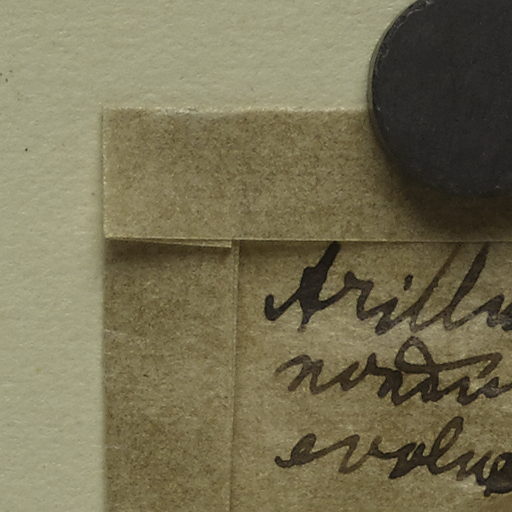 Arillu
nondu
evolue